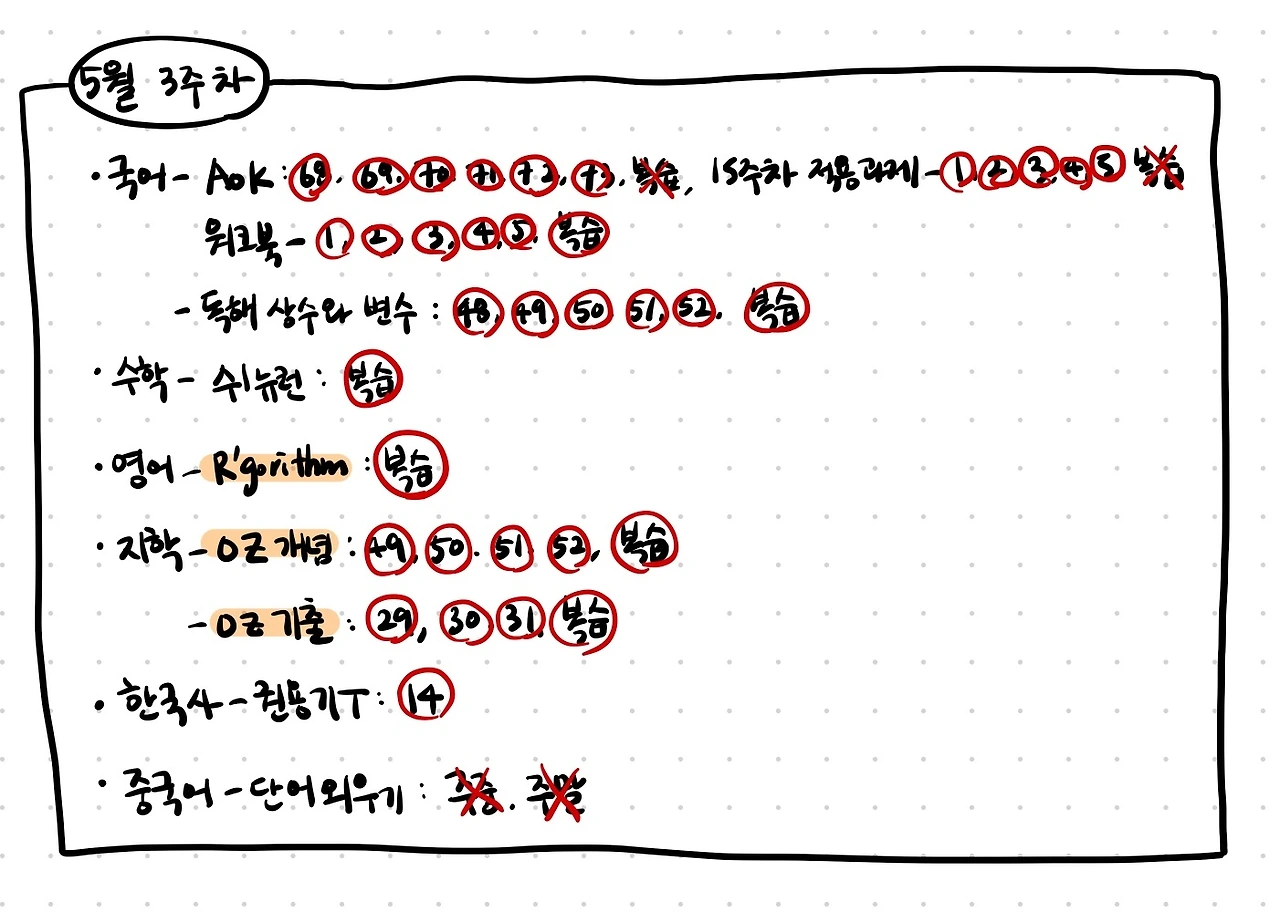 5월 3주차
· 국어 - AOK : 68. 69. 70 71. 72. 73. 복습, 15주차 적용과제 - 1, 2 3, 4 5 복습
워크북 - 1, 2, 3, 4, 5. 복습
- 독해 상수와 변수 : 48, 49, 50 51, 52. 복습
· 수학 - 수1뉴런 : 복습
· 영어 - R'gorithm : 복습
· 지학 - OZ 개념 : 49, 50. 51. 52, 복습
- OZ 기출 : 29, 30 31. 복습
· 한국사 - 권용기T : 14
· 중국어 - 단어외우기 : 주중. 주말